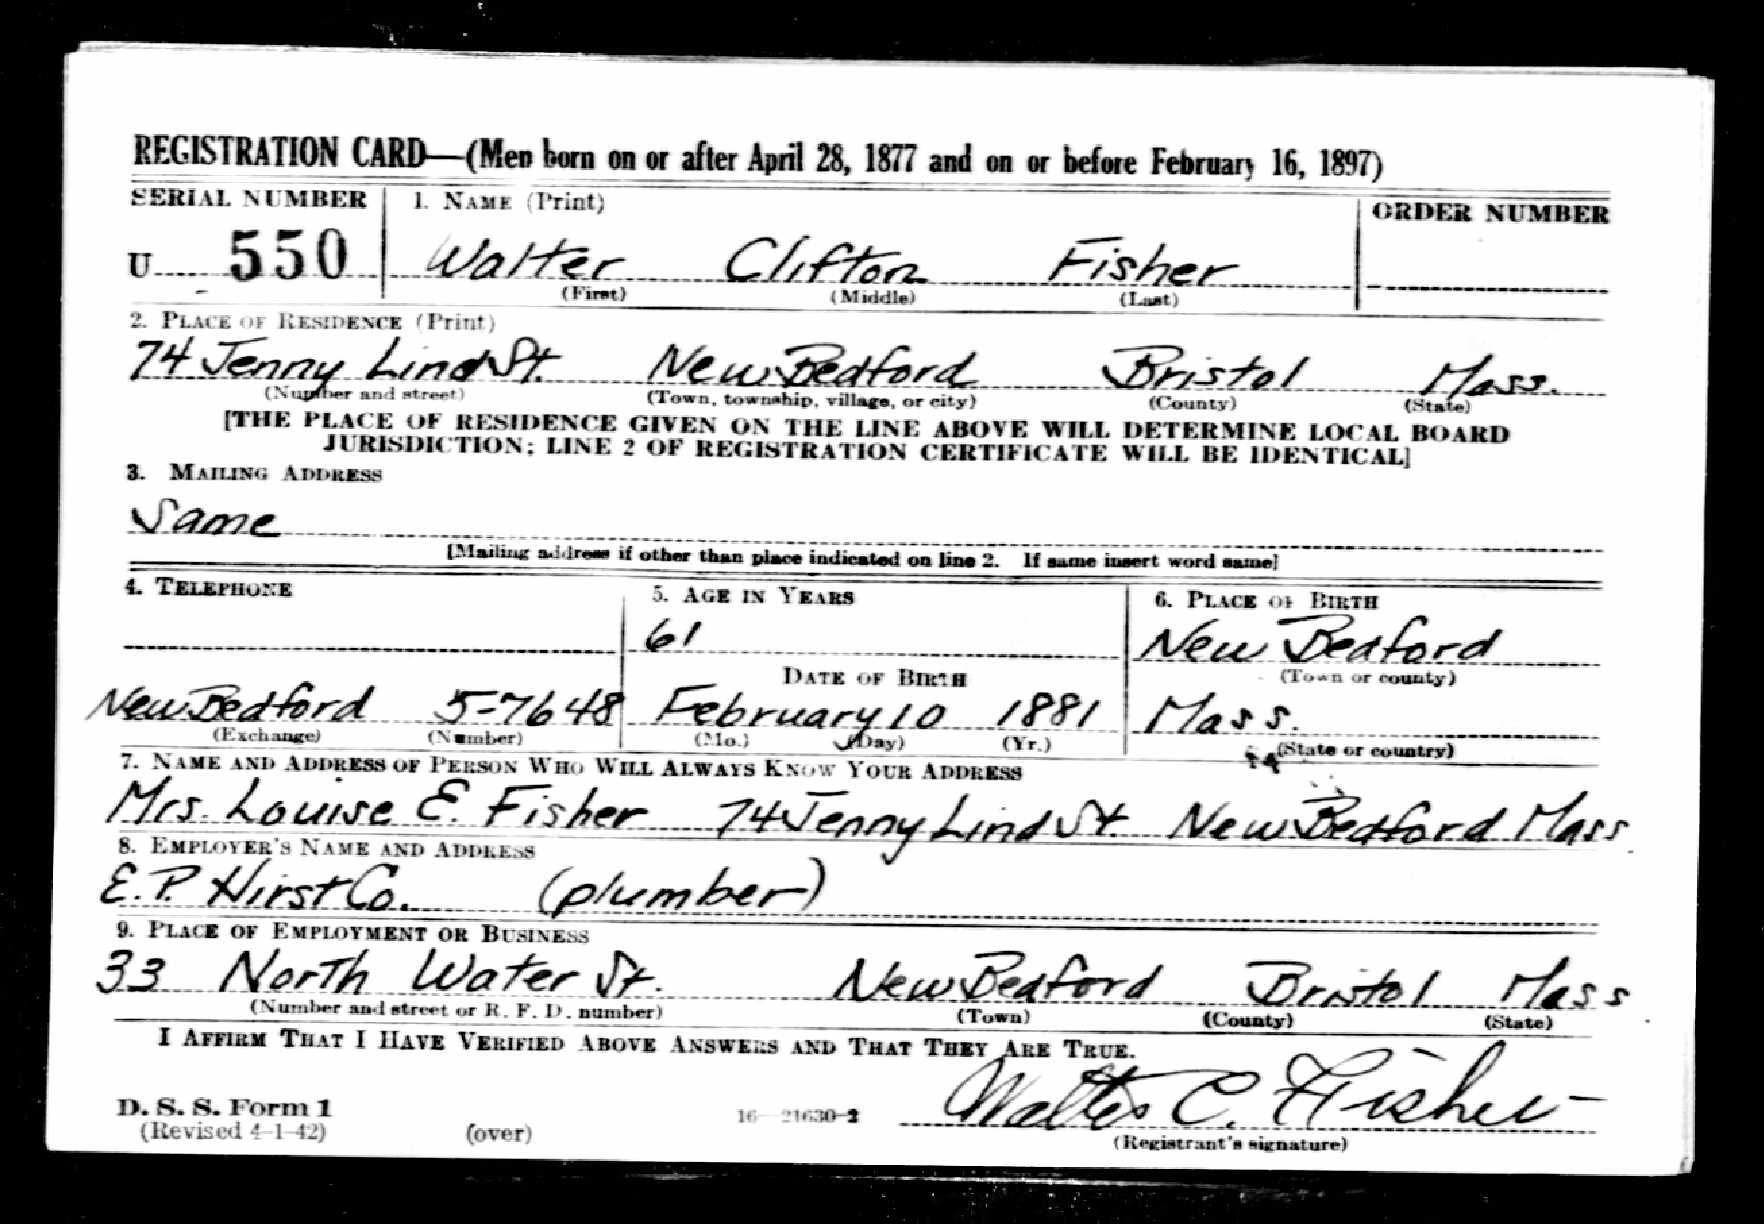 REGISTRATION CARD—(Men born on or after April 28, 1877 and on or before February 16, 1897)
SERIAL NUMBER 1. NAME (Print) ORDER NUMBER
U 550 Walter Clifton Fisher
(First) (Middle) (Last)
2. PLACE OF RESIDENCE (Print)
74 Jenny Lind St. New Bedford Bristol Mass.
(Number and street) (Town, township, village, or city) (County) (State)
[THE PLACE OF RESIDENCE GIVEN ON THE LINE ABOVE WILL DETERMINE LOCAL BOARD
JURISDICTION; LINE 2 OF REGISTRATION CERTIFICATE WILL BE IDENTICAL]
3. MAILING ADDRESS
Same
[Mailing address if other than place indicated on line 2. If same insert word same]
4. TELEPHONE 5. AGE IN YEARS 6. PLACE OF BIRTH
61 New Bedford
DATE OF BIRTH (Town or county)
New Bedford 5-7648 February 10 1881 Mass.
(Exchange) (Number) (Mo.) (Day) (Yr.) (State or country)
7. NAME AND ADDRESS OF PERSON WHO WILL ALWAYS KNOW YOUR ADDRESS
Mrs. Louise E. Fisher 74 Jenny Lind St New Bedford Mass
8. EMPLOYER'S NAME AND ADDRESS
E. P. Hirst Co. (plumber)
9. PLACE OF EMPLOYMENT OR BUSINESS
33 North Water St. New Bedford Bristol Mass
(Number and street or R. F. D. number) (Town) (County) (State)
I AFFIRM THAT I HAVE VERIFIED ABOVE ANSWERS AND THAT THEY ARE TRUE.
D. S. S. Form 1 16—21630-2 Walter C. Fisher
(Revised 4-1-42) (over) (Registrant's signature)